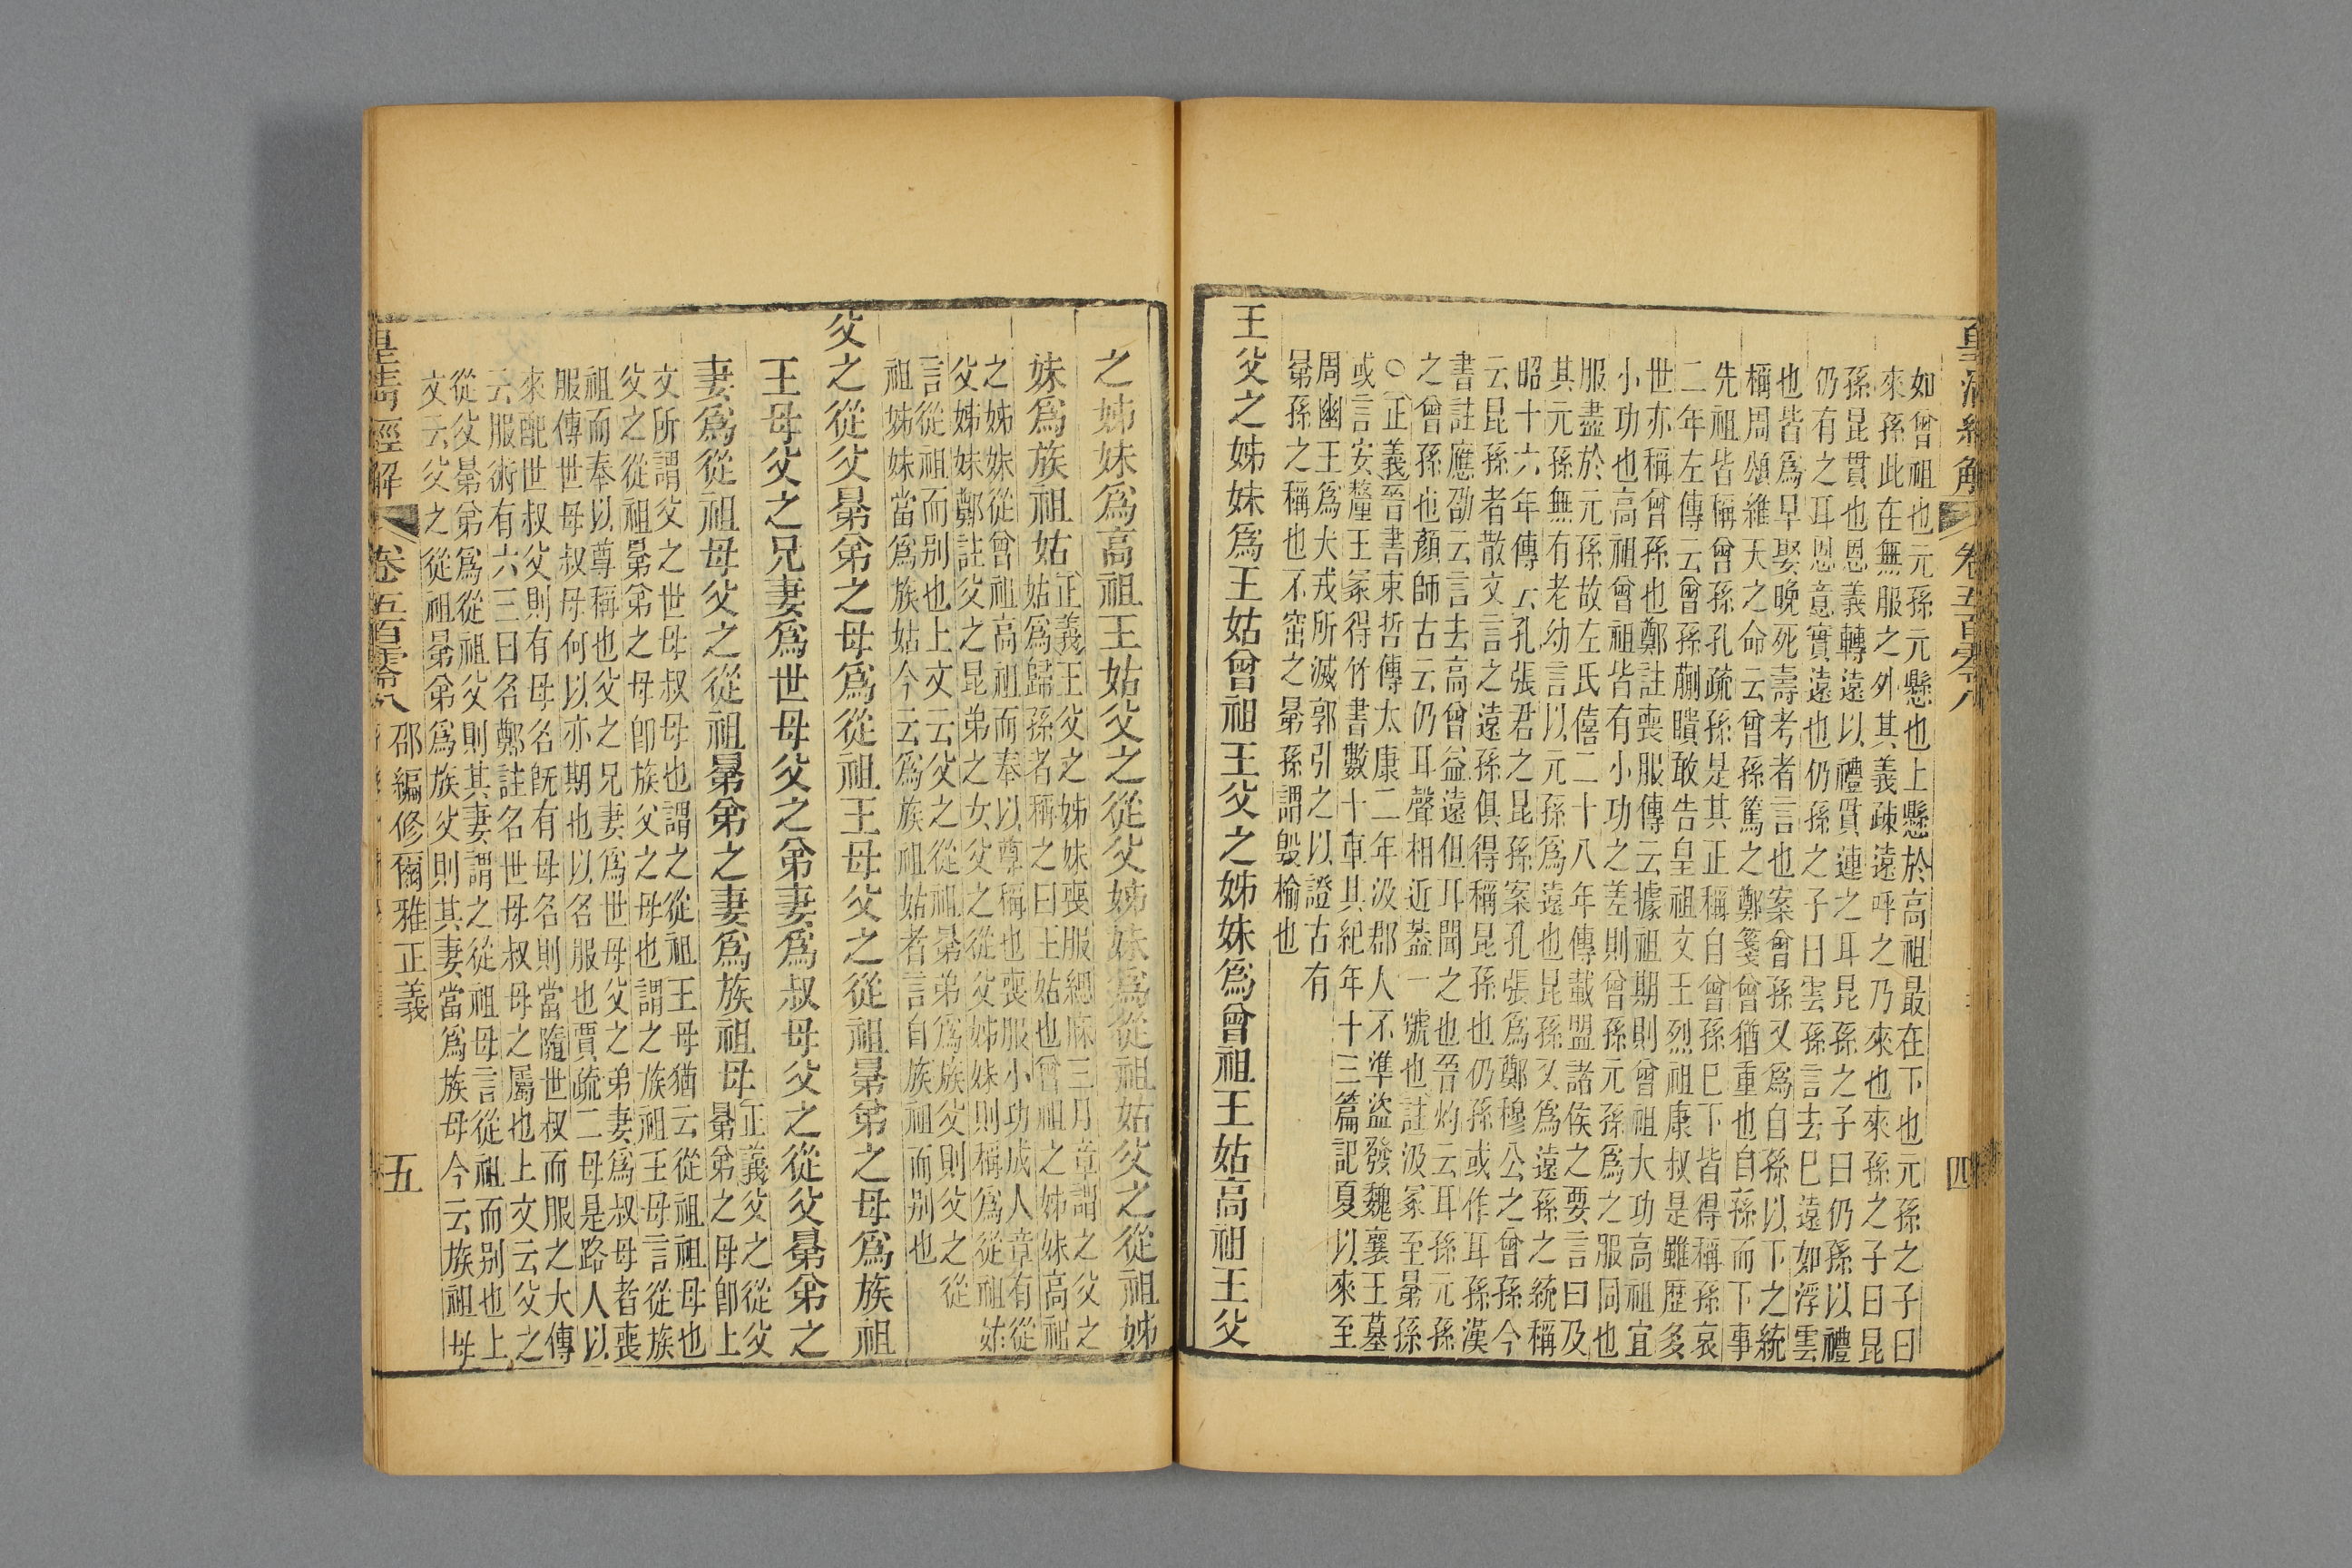 皇清經解
卷五百零八
四
如曾祖也元孫元懸也上懸於高祖最在下也元孫之子曰
來孫此在無服之外其義疎遠呼之乃來也來孫之子曰昆
孫昆貫也恩義轉遠以禮貫連之耳昆孫之子曰仍孫以禮
仍有之耳恩意實遠也仍孫之子曰雲孫言去已遠如浮雲
也皆爲早娶晚死壽考者言也案曾孫又爲自孫以下之統
稱周頌維天之命云曾孫篤之鄭箋曾猶重也自孫而下事
先祖皆稱曾孫孔疏孫是其正稱自曾孫已下皆得稱孫哀
二年左傳云曾孫蒯聵敢告皇祖文王烈祖康叔是雖歷多
世亦稱曾孫也鄭註喪服傳云據祖期則曾祖大功高祖宜
小功也高祖曾祖皆有小功之差則曾孫元孫爲之服同也
服盡於元孫故左氏僖二十八年傳載盟諸侯之要言曰及
其元孫無有老幼言以元孫爲遠也昆孫又爲遠孫之統稱
昭十六年傳云孔張君之昆孫案孔張爲鄭穆公之曾孫今
云昆孫者散文言之遠孫俱得稱昆孫也仍孫或作耳孫漢
書註應劭云言去高曾益遠但耳聞之也晉灼云耳孫元孫
之曾孫也顏師古云仍耳聲相近蓋一號也註汲冢至晜孫
○正義晉書束晳傳太康二年汲郡人不準盜發魏襄王墓
或言安釐王冢得竹書數十車其紀年十三篇記夏以來至
周幽王爲犬戎所滅郭引之以證古有
晜孫之稱也不窋之晜孫謂毀榆也
王父之姊妹爲王姑曾祖王父之姊妹爲曾祖王姑高祖王父
之姊妹爲高祖王姑父之從父姊妹爲從祖姑父之從祖姊
妹爲族祖姑
正義王父之姊妹喪服緦麻三月章謂之父之
姑爲歸孫者稱之曰王姑也曾祖之姊妹高祖
之姊妹從曾祖高祖而奉以尊稱也喪服小功成人章有從
父姊妹鄭註父之昆弟之女父之從父姊妹則稱爲從祖姑
言從祖而別也上文云父之從祖晜弟爲族父則父之從
祖姊妹當爲族姑今云爲族祖姑者言自族祖而別也
父之從父晜弟之母爲從祖王母父之從祖晜弟之母爲族祖
王母父之兄妻爲世母父之弟妻爲叔母父之從父晜弟之
妻爲從祖母父之從祖晜弟之妻爲族祖母
正義父之從父
晜弟之母卽上
文所謂父之世母叔母也謂之從祖王母猶云從祖祖母也
父之從祖晜弟之母卽族父之母也謂之族祖王母言從族
祖而奉以尊稱也父之兄妻爲世母父之弟妻爲叔母者喪
服傳世母叔母何以亦期也以名服也賈疏二母是路人以
來配世叔父則有母名旣有母名則當隨世叔而服之大傳
云服術有六三曰名鄭註名世母叔母之屬也上文云父之
從父晜弟爲從祖父則其妻謂之從祖母言從祖而別也上
文云父之從祖晜弟爲族父則其妻當爲族母今云族祖母
皇清經解
卷五百零八
邵編修爾雅正義
五